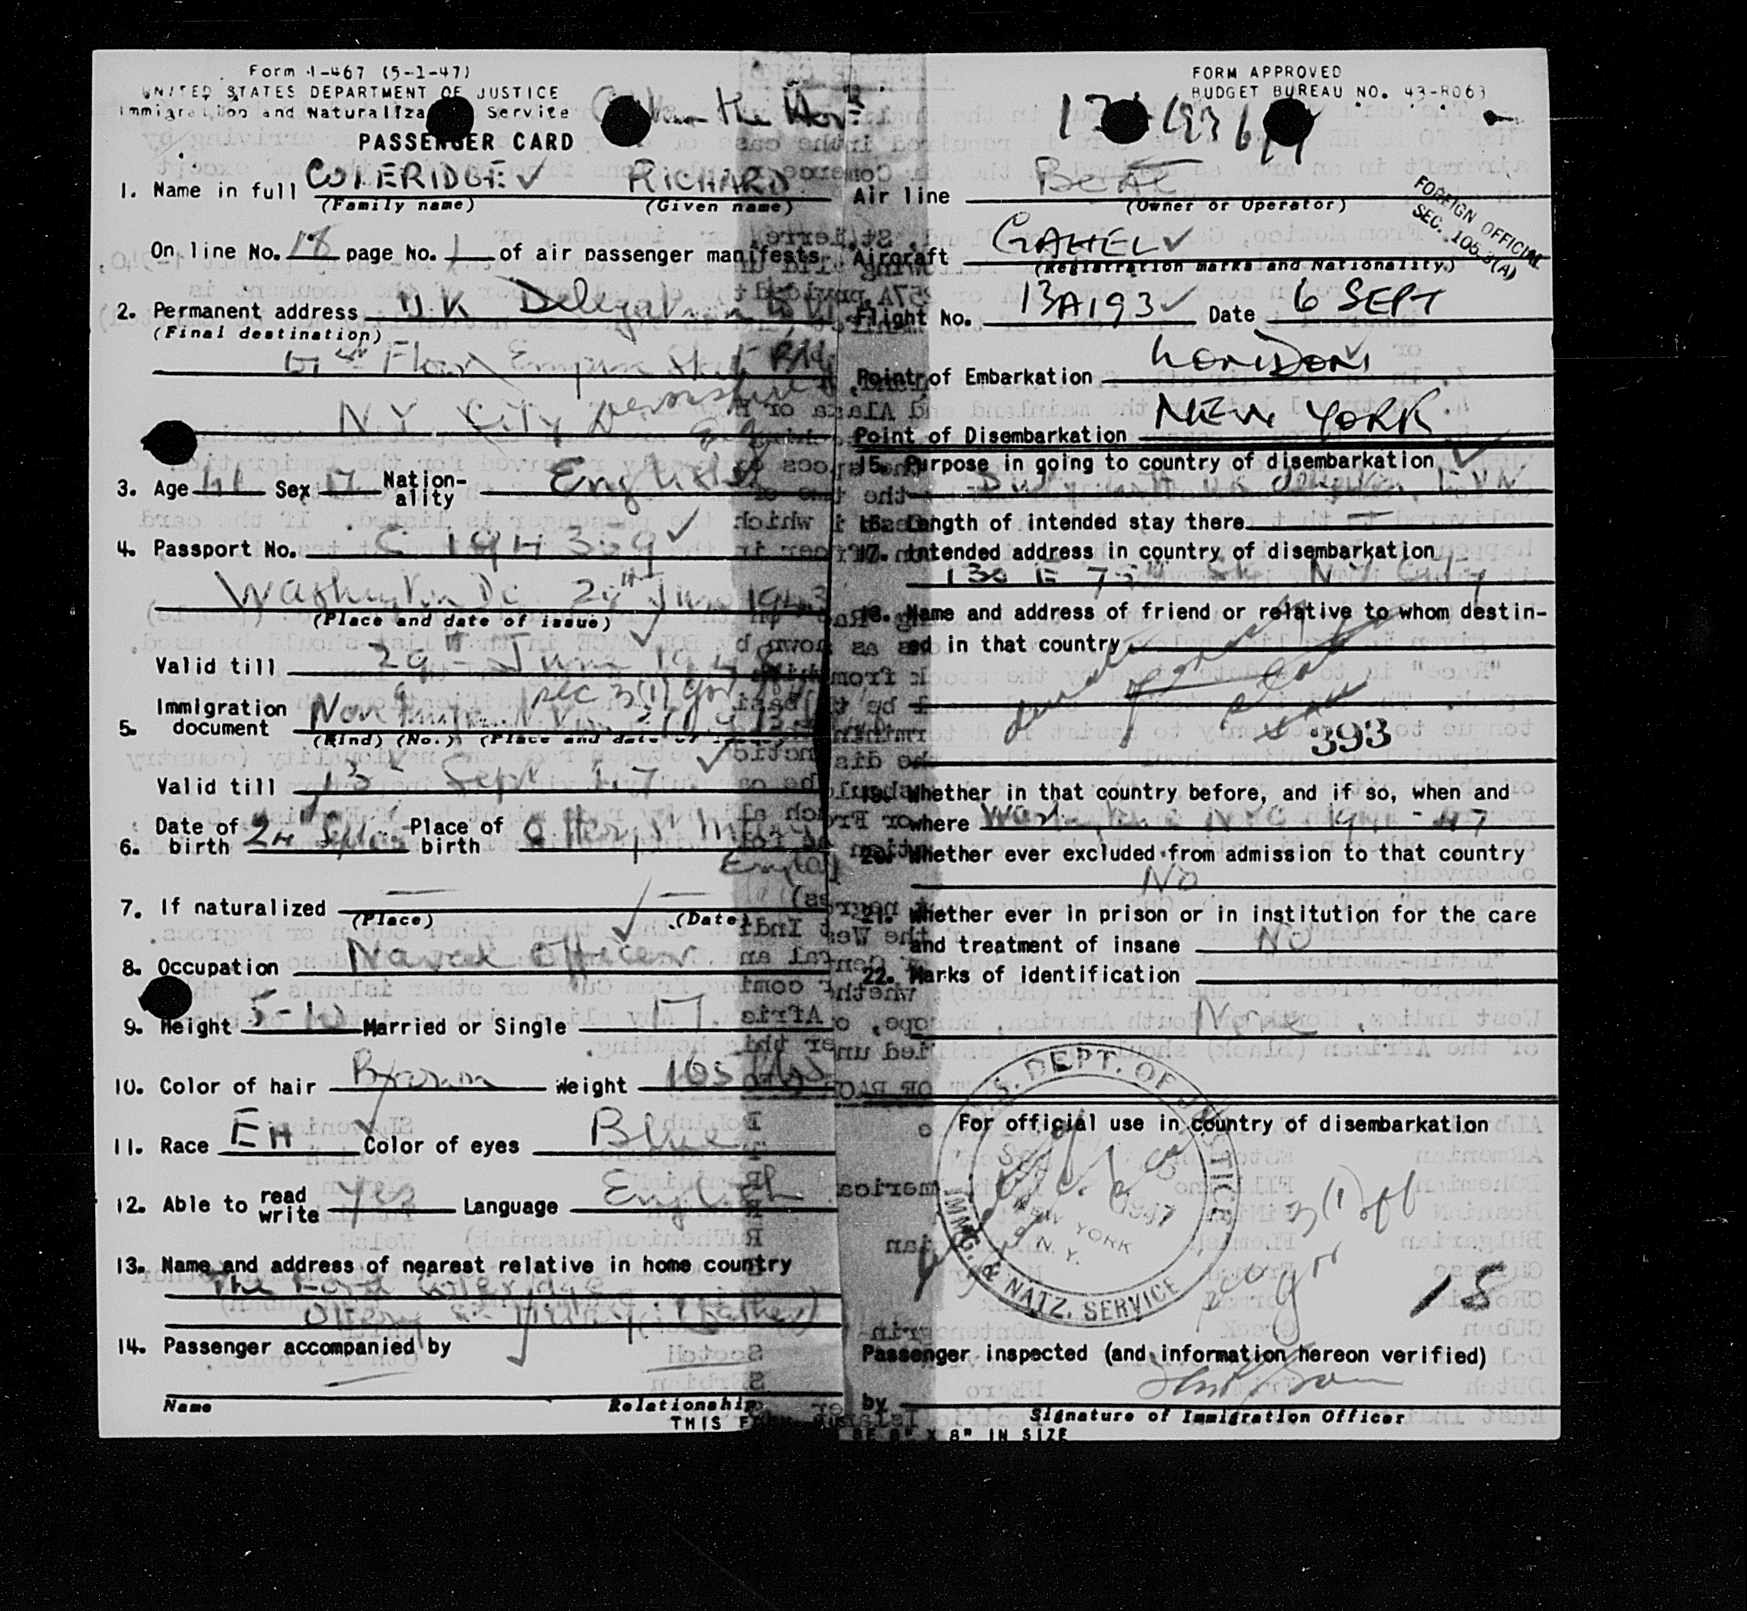 Form I-467 (5-1-47)
UNITED STATES DEPARTMENT OF JUSTICE
Immigration and Naturaliza Service
PASSENGER CARD
the Hon
1. Name in full COLERIDGE RICHARD
(Family name) (Given name)
On line No. 18 page No. 1 of air passenger manifests
2. Permanent address U.K Delegation to UN
(Final destination)
Floor Empire State Bldg
N.Y. City Devonshire
3. Age 41 Sex M Nation-ality English
4. Passport No. C 194359
Washington DC 29th June 1943
(Place and date of issue)
Valid till 29th June 19
5. Immigration document Non Sec 3(1)
(Kind) (No.) (Place and date of
Valid till 13 Sept 47
6. Date of birth 24 Place of birth Ottery St Mary
England
7. If naturalized — —
(Place) (Date)
8. Occupation Naval Officer
9. Height 5-10 Married or Single M.
10. Color of hair Brown Weight 165 lbs
11. Race EH Color of eyes Blue
12. Able to read write Yes Language English
13. Name and address of nearest relative in home country
The Lord Coleridge
Ottery St Mary (father)
14. Passenger accompanied by
—
Name Relationship
THIS F BE 8" X 8" IN SIZE
FORM APPROVED
BUDGET BUREAU NO. 43-R063
Air line BOAC
(Owner or Operator)
FOREIGN OFFICIAL
SEC. 105.3(A)
Aircraft GAHEL
(Registration marks and Nationality)
Flight No. 13A193 Date 6 SEPT
Point of Embarkation LONDON
Point of Disembarkation NEW YORK
15. Purpose in going to country of disembarkation
Duty with UK delegation, UN
16. Length of intended stay there —
17. Intended address in country of disembarkation
130 E 75th St N Y City
18. Name and address of friend or relative to whom destin-
ed in that country
393
19. Whether in that country before, and if so, when and
where Washington & NYC 1941-47
20. Whether ever excluded from admission to that country
No
21. Whether ever in prison or in institution for the care
and treatment of insane No
22. Marks of identification
None
For official use in country of disembarkation
U.S. DEPT. OF JUSTICE
NEW YORK
N. Y.
IMMG. & NATZ. SERVICE
3(1)
18
Passenger inspected (and information hereon verified)
by
Signature of Immigration Officer